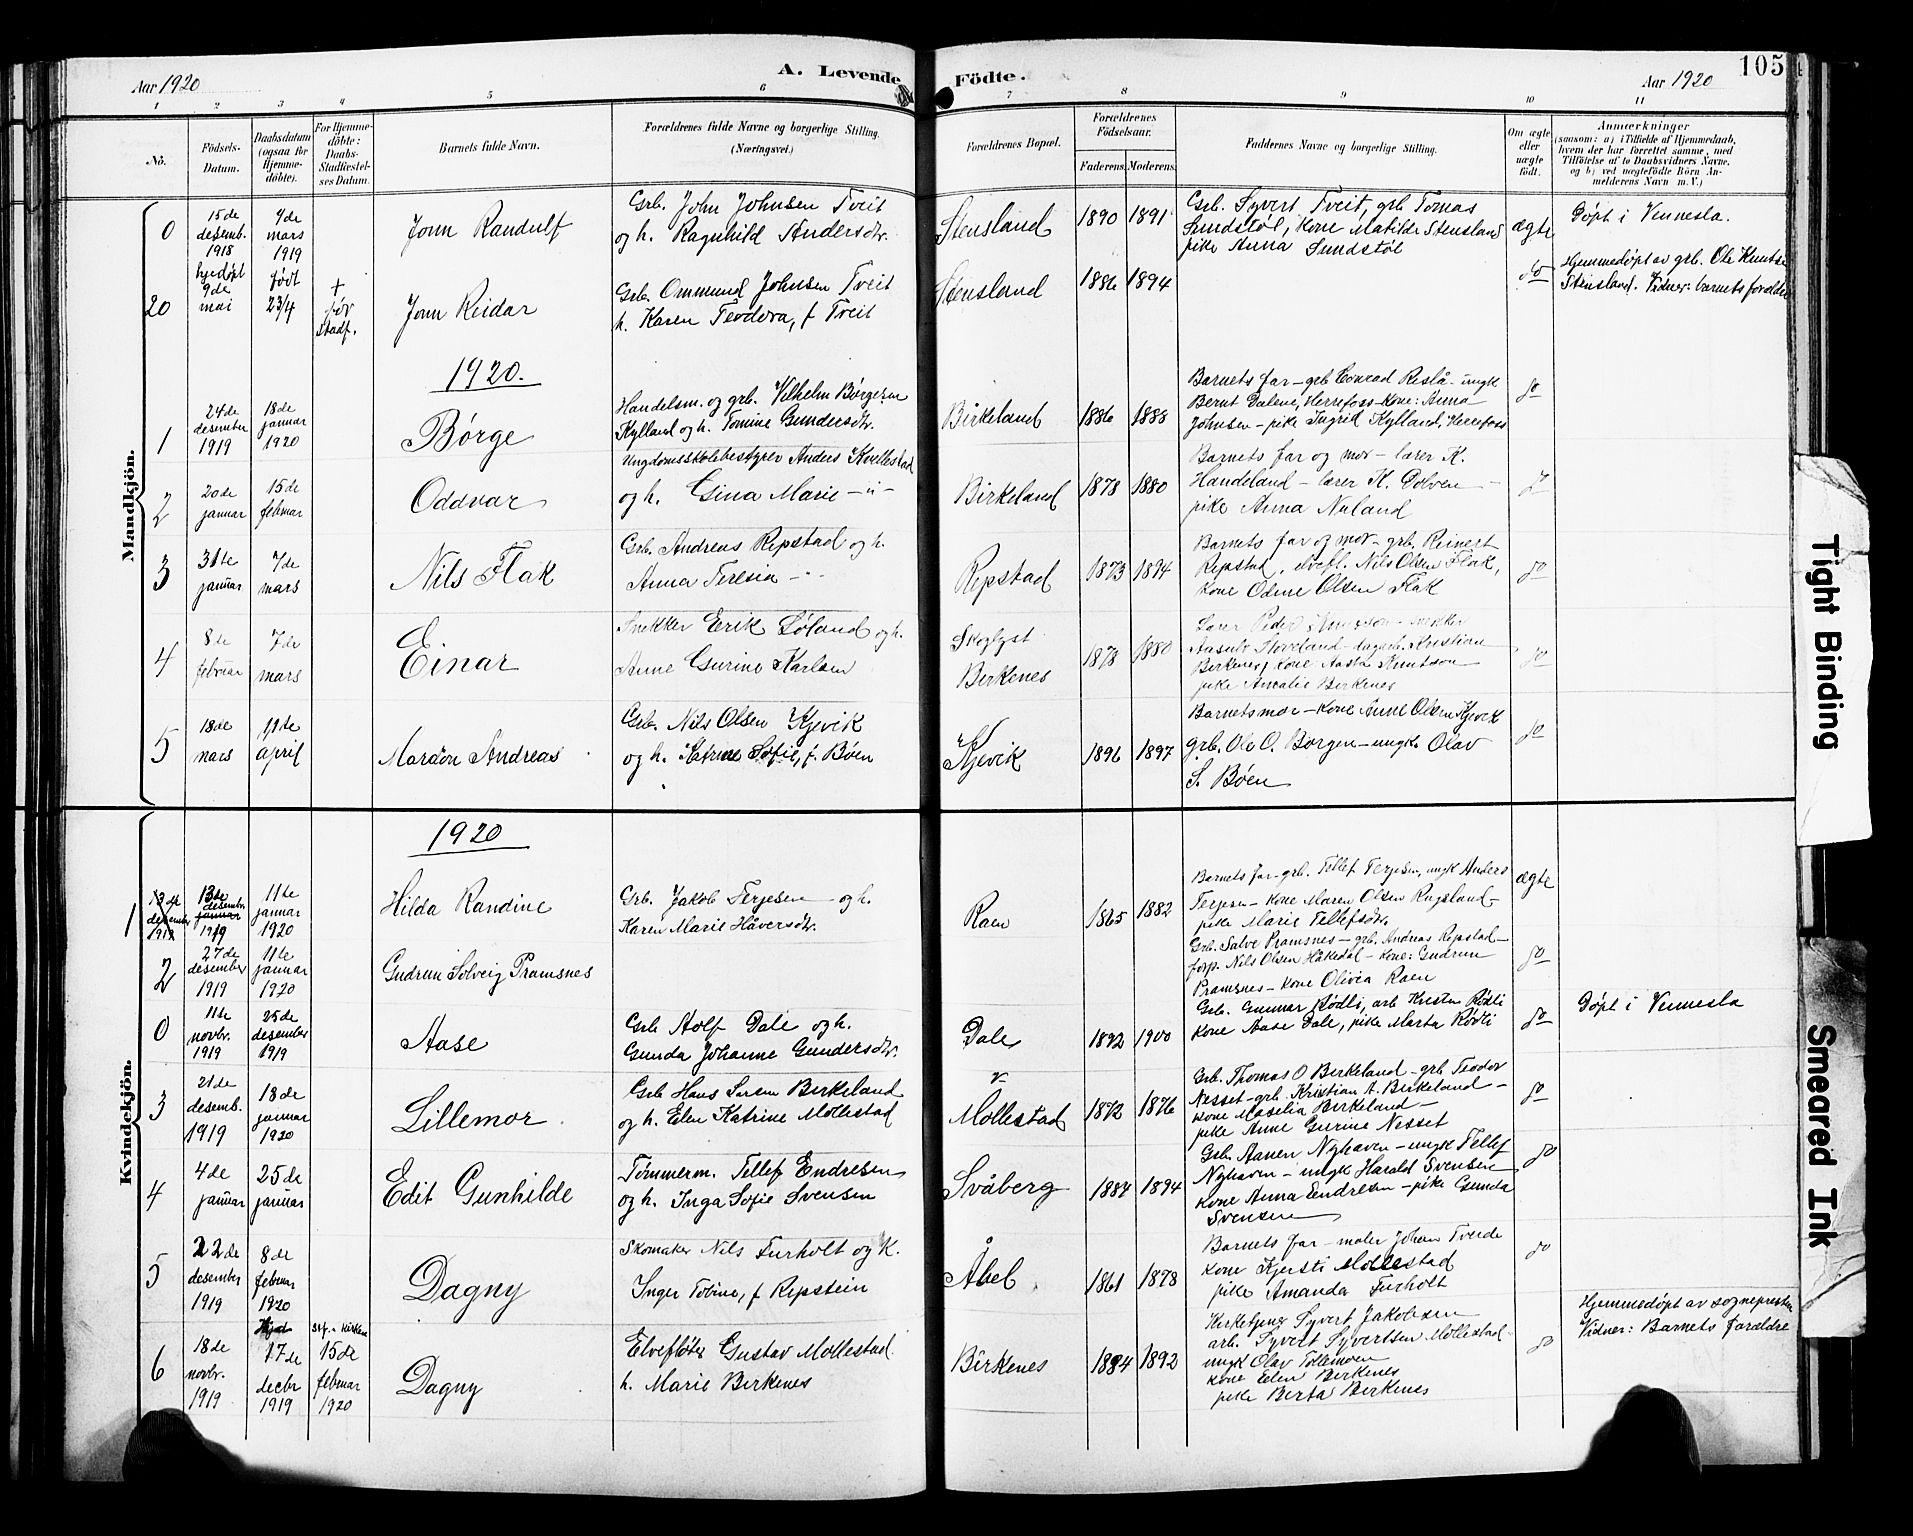 Aar 1920
A. Levende
Födte.
Aar 1920
105
1 2 3 4 5 6 7 8 9 10 11
No.
Födsels-
Datum.
Daabsdatum
(ogsaa for
Hjemme-
döbte).
For Hjemme-
döbte:
Daabs-
Stadfæstel-
ses Datum.
Barnets fulde Navn.
Forældrenes fulde Navne og borgerlige Stilling.
(Næringsvei.)
Forældrenes Bopæl.
Forældrenes
Födselsaar.
Faderens. Moderens.
Faddernes Navne og borgerlige Stilling.
Om ægte
eller
uægte
født.
Anmærkninger
(saasom: a) i Tilfælde af Hjemmedaab,
hvem der har forrettet samme, med
Tilföielse af to Daabsvidners Navne,
og b) ved uægtefödte Börn An-
melderens Navn m. V.)
Mandkjön.
0
15de
desemb.
1918
7de
mars
1919
Jonn Randulf
Grb. John Johnsen Tveit
og h. Ragnhild Andersdtr.
Stensland
1890 1891
Grb. Syvert Tveit, grb Tomas
Sundstøl, kone Matilde Stensland
pike Anna Sundstøl
ægte
Døpt i Vennesla.
20
hjedøpt
9de
mai
født
23/4
+
før
stadf.
Jonn Reidar
Grb. Ommund Johnsen Tveit
h. Karen Teodora, f Tveit
Stensland
1886 1894
do
Hjemmedøpt av grb. Ole Knuts.
Stensland. Vidner: barnets forældre
1920.
1
24de
desember
1919
18de
januar
1920
Børge
Handelsm. og grb. Vilhelm Børgesen
Kylland og h. Tomine Gundersdtr.
Birkeland
1886 1888
Barnets far – grb Conrad Reslå – ungk
Bernt Dalene, Herrefoss – kone: Anna
Johnsen – pike Ingrid Kylland, Herrefoss
do
2
20de
januar
15de
februar
Oddvar
Ungdomsskolebestyrer Anders Kvellestad
og h. Gina Marie – " –
Birkeland
1878 1880
Barnets far og mor – lærer K.
Handeland – lærer K. Dolven –
pike Anna Naland
3
31te
januar
7de
mars
Nils Flak
Grb. Andreas Repstad og h.
Anna Teresia – " –
Repstad
1873 1894
Barnets far og mor – grb. Reinert
Repstad, elvefl. Nils Olsen Flak,
kone Odine Olsen Flak
do
4
8de
februar
7de
mars
Einar
Snekker Erik Løland og h.
Anne Gurine Karlsen
Skoglyst
Birkenes
1878 1880
Lærer Peder
Birkenes, kone Aasta Knutson
pike Amalie Birkenes
do
5
18de
mars
11de
april
Mardon Andreas
Grb. Nils Olsen Kjevik
og h. Katrine Sofie, f. Bøen
Kjevik
1896 1897
Barnets mor – kone Anne Olsen Kjevik
grb. Ole O. Borgen – ungk. Olav
S. Bøen
do
Kvindekjön.
1920
1
13de
desember
1919
13de
desember
januar
1919
11te
januar
1920
Hilda Randine
Grb. Jakob Terjesen – og h.
Karen Marie Håversdtr.
Raen
1865 1882
Barnets far – grb. Tellef Terjesen, ungk Anders
Terjesen – kone Maren Olsen Rugsland –
pike Marie Tellefsdtr.
ægte
2
27de
desember
1919
11te
januar
1920
Gudrun Solveig Pramsnes
Grb. Salve Pramsnes – grb. Andreas Repstad –
forp. Nils Olsen Håkedal – kone: Gudrun
Pramsnes – kone Olivia Raen
do
0
11te
novbr.
1919
25de
desember
1919
Aase
Grb Adolf Dale og h.
Gunda Johanne Gundersdtr.
Dale
1892 1900
Grb. Gunnar Rødli, arb Kristen Rødli
kone Aase Dale, pike Marta Rødli
do
Døpt i Vennesla
3
21de
desemb.
1919
18de
januar
1920
Lillemor
Grb Hans Soren Birkeland
og h. Elen Katrine Mollestad
Mollestad
1872 1876
Grb. Thomas O Birkeland – grb Teodor
Nesset – grb. Kristian A. Birkeland –
kone Maselia Birkeland –
pike Anne Gurine Nesset
do
4
4de
januar
25de
januar
Edit Gunhilde
Tømmerm. Tellef Endresen
og h. Inga Sofie Svensen
Svåberg
1884 1894
Grb. Aanen Nyhaven – ungk Tellef
Nyhaven – ungk Harald Svensen
kone Anna Endresen – pike Gunda
Svensen
do
5
22de
desember
1919
8de
februar
1920
Dagny
Skomaker Nils Furholt og K.
Inger Tobine, f Repstein
Åbel
1861 1878
Barnets far – maler Johan Tveide
kone Kjersti Mollestad
pike Amanda Furholt
do
6
18de
novbr.
1919
Hjed
17de
decbr
1919
stf. i kirken
15de
februar
1920
Dagny
Elvefløter Gustav Mollestad
h. Marie Birkenes
Birkenes
1884 1892
Kirketjener Syvert Jakobsen
arb. Syvert Syvertsen Mollestad
ungk Olav Tollemoen
kone Elen Birkenes
pike Berta Birkenes
do
Hjemmedøpt av sognepresten
Vidner: Barnets forældre
Tight Binding
Smeared Ink